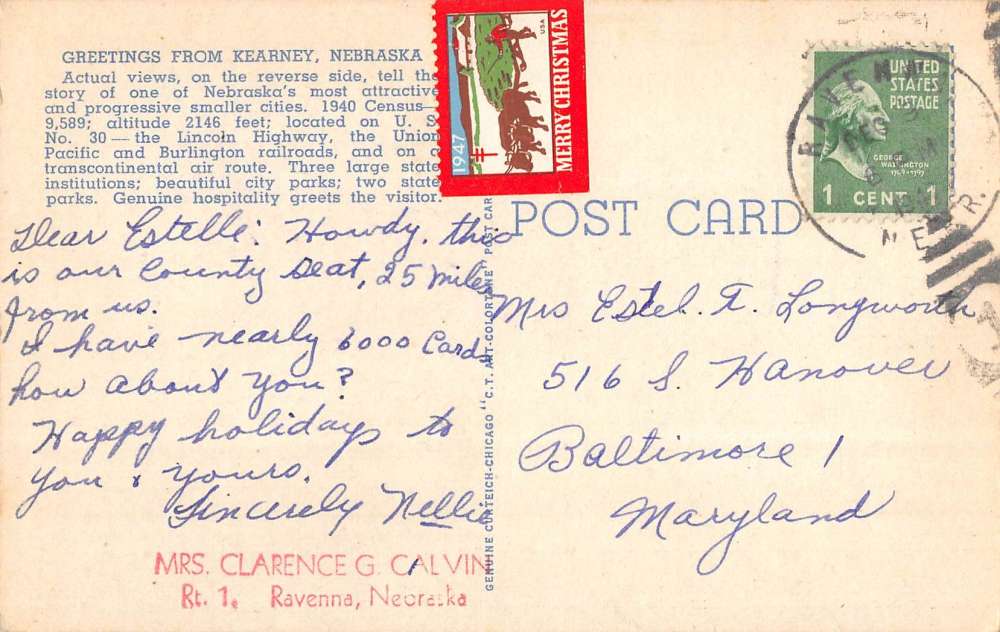 GREETINGS FROM KEARNEY, NEBRASKA
Actual views, on the reverse side, tell the
story of one of Nebraska's most attractive
and progressive smaller cities. 1940 Census—
9,589; altitude 2146 feet; located on U. S.
No. 30 — the Lincoln Highway, the Union
Pacific and Burlington railroads, and on a
transcontinental air route. Three large state
institutions; beautiful city parks; two state
parks. Genuine hospitality greets the visitor.
Dear Estelle: Howdy, this
is our County Seat, 25 miles
from us.
I have nearly 6000 Cards
how about you?
Happy holidays to
you & yours.
Sincerely Nellie
MRS. CLARENCE G. CALVIN
Rt. 1. Ravenna, Nebraska
GENUINE CURTEICH-CHICAGO "C.T. ART-COLORTONE" POST CAR
1947
MERRY CHRISTMAS
USA
UNITED
STATES
POSTAGE
GEORGE
WASHINGTON
1789-1797
1 CENT 1
RAVENNA
DEC
NEBR.
POST CARD
Mrs Estel. F. Longworth
516 S. Hanover
Baltimore 1
Maryland